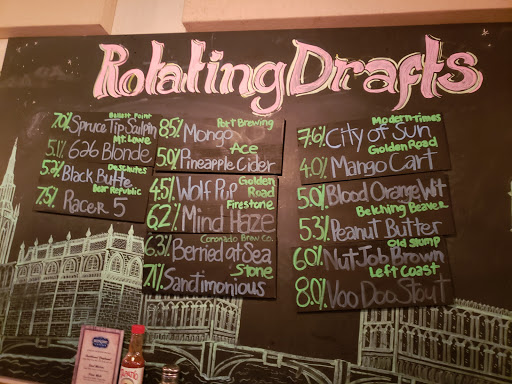 Rotating Drafts
Ballast Point
7.0% Spruce Tip Sculpin
Mt. Lowe
5.1% 626 Blonde
Deschutes
5.2% Black Butte
Bear Republic
7.5% Racer 5
Port Brewing
8.5% Mongo
Ace
5.0% Pineapple Cider
Golden Road
4.5% Wolf Pup
Firestone
6.2% Mind Haze
Coronado Brew Co.
6.3% Berried at Sea
Stone
7.1% Sanctimonious
Modern Times
7.6% City of Sun
Golden Road
4.0% Mango Cart
5.0% Blood Orange Wit
Belching Beaver
5.3% Peanut Butter
Old Stump
6.0% Nut Job Brown
Left Coast
8.0% Voo Doo Stout